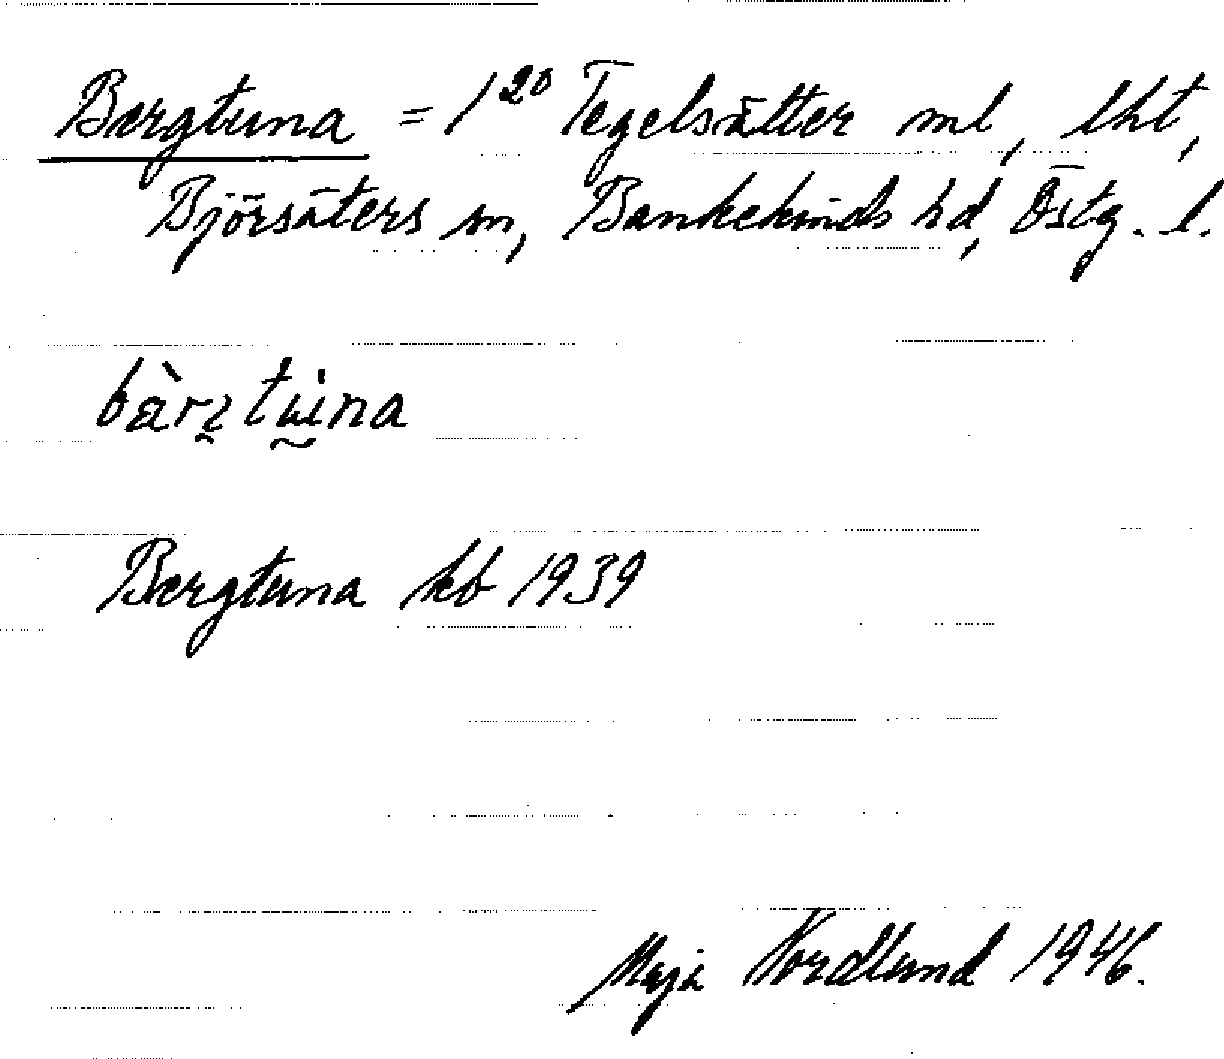 Bergtuna = 1²⁰ Tegelsätter ml, lht,
Björsäters sn, Bankekinds hd, Östg. l.
Bergtuna kb 1939
Maja Nordlund 1946.